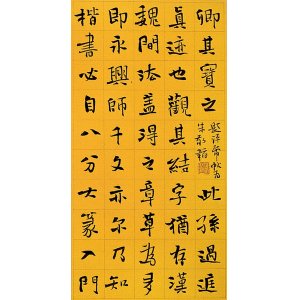 卿其寶之此孫過庭
眞迹也觀其結字猶存漢
魏間法蓋得之章草為多
即永興師千文亦尔乃知
楷書必自八分大篆入門